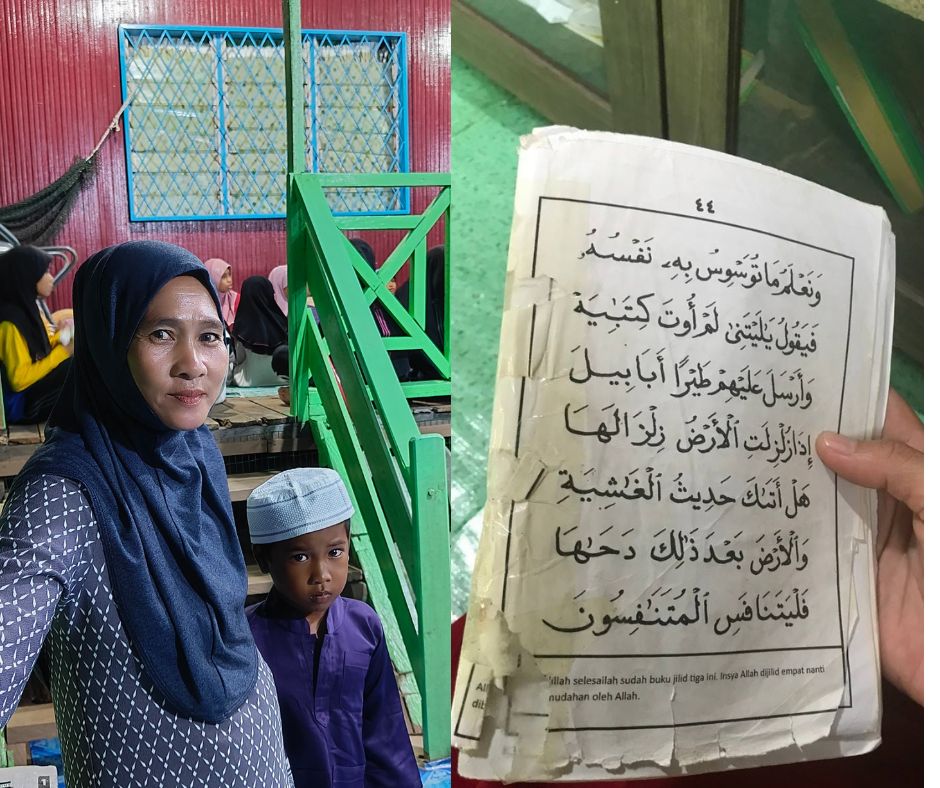 ٤٤
وَنَعْلَمُ مَا تُوَسْوِسُ بِهِۦ نَفْسُهُۥ
فَيَقُولُ يَٰلَيْتَنِى لَمْ أُوتَ كِتَٰبِيَهْ
وَأَرْسَلَ عَلَيْهِمْ طَيْرًا أَبَابِيلَ
إِذَا زُلْزِلَتِ ٱلْأَرْضُ زِلْزَالَهَا
هَلْ أَتَىٰكَ حَدِيثُ ٱلْغَٰشِيَةِ
وَٱلْأَرْضَ بَعْدَ ذَٰلِكَ دَحَىٰهَا
فَلْيَتَنَافَسِ ٱلْمُتَنَٰفِسُونَ
selesailah sudah buku jilid tiga ini. Insya Allah dijilid empat nanti
oleh Allah.